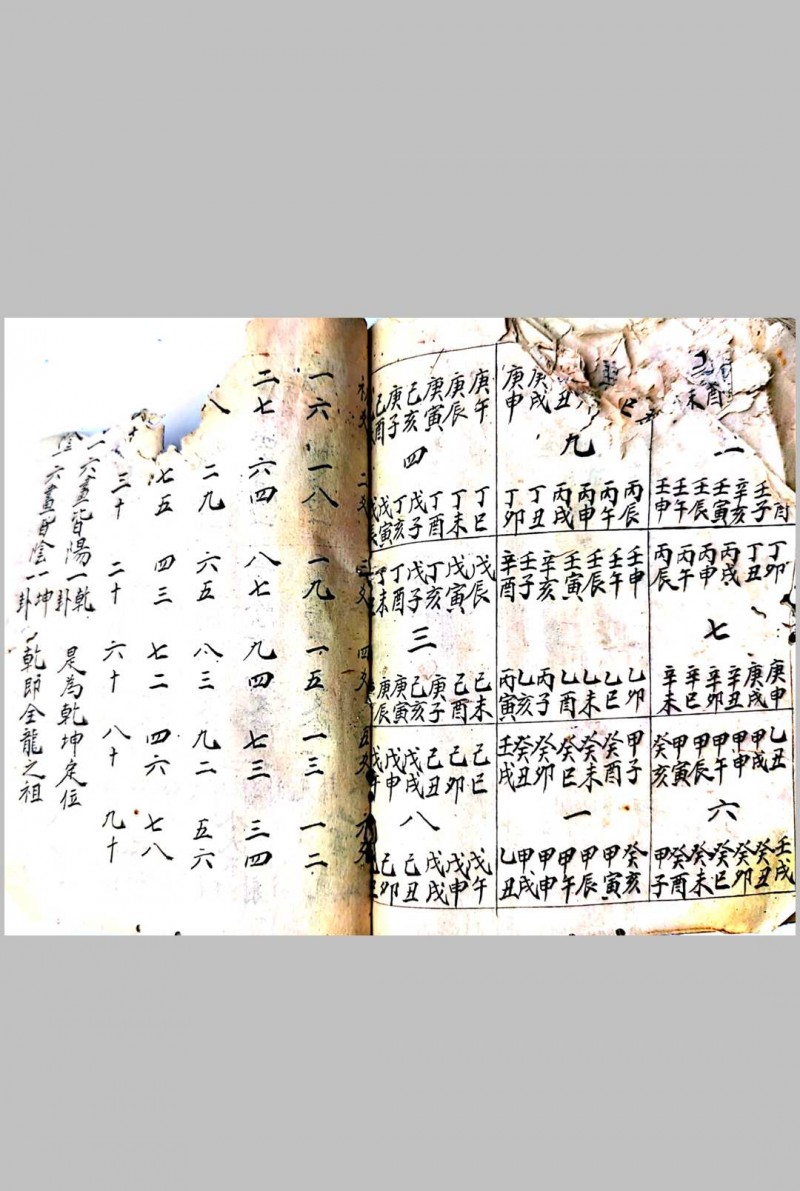 酉
未
一
壬子
辛亥
壬寅
壬辰
壬午
壬申
丁卯
丁丑
丙戌
丙申
丙午
丙辰
七
庚申
庚戌
辛丑
辛卯
辛巳
辛未
乙丑
甲戌
甲申
甲午
甲辰
甲寅
癸亥
六
壬戌
癸丑
癸卯
癸巳
癸未
癸酉
甲子
丑
庚戌
庚申
九
丙辰
丙午
丙申
丙戌
丁丑
丁卯
壬申
壬午
壬辰
壬寅
辛亥
壬子
辛酉
乙卯
乙巳
乙未
乙酉
丙子
乙亥
丙寅
甲子
癸酉
癸未
癸巳
癸卯
癸丑
壬戌
一
癸亥
甲寅
甲辰
甲午
甲申
甲戌
乙丑
庚午
庚辰
庚寅
己亥
庚子
己酉
四
丁巳
丁未
丁酉
戊子
丁亥
戊寅
戊辰
戊寅
丁亥
戊子
丁酉
丁未
三
己未
己酉
庚子
庚寅
庚辰
己巳
己卯
己丑
戊戌
戊申
戊午
八
戊午
戊申
戊戌
己丑
己卯
二爻 三爻 四爻 五爻 六爻
一六 一八 一九 一五 一三 一二
二七 六四 八七 九四 七三 三四
八 二九 六五 八三 九二 五六
七五 四三 七二 四六 七八
三十 二十 六十 八十 九十
一六畫皆陽一乾卦 是為乾坤定位
六畫皆陰一坤卦 乾即全龍之祖